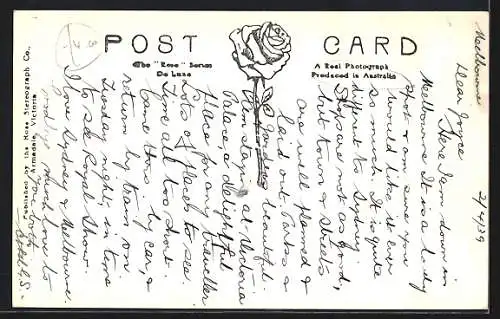 POST CARD
The "Rose" Series
De Luxe
A Real Photograph
Produced in Australia
Published by the Rose Stereograph Co.,
Armadale, Victoria
Melbourne
2/4/39
Dear Joyce
Here I am down in
Melbourne. It is a lovely
spot & am sure you
would like it ever
so much. It is quite
different to Sydney.
Shops are not as good,
but town & streets
are well planned &
laid out. Parks &
Gardens beautiful
Am staying at Victoria
Palace, a delightful
place for any traveller
Lots of places to see.
Time all too short.
Came this by car, &
return by tram on
Tuesday night, in time
to see Royal Show.
I love Sydney & Melbourne.
much love to